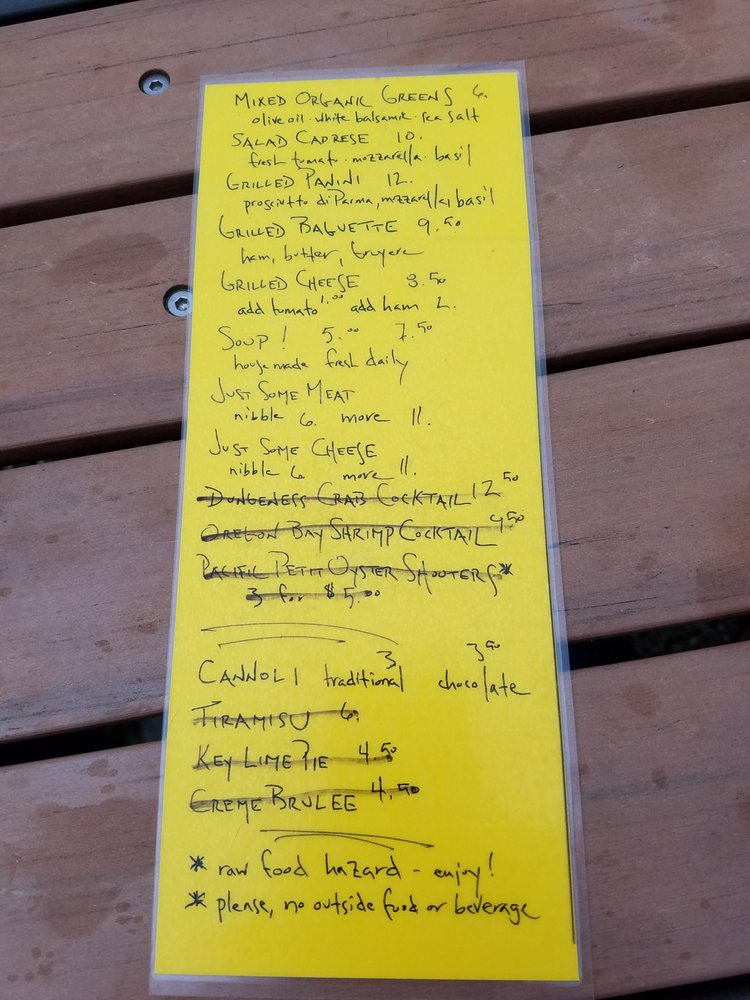 MIXED ORGANIC GREENS 6.
olive oil · white balsamic · sea salt
SALAD CAPRESE 10.
fresh tomato · mozzarella · basil
GRILLED PANINI 12.
prosciutto di Parma, mzzarella, basil
GRILLED BAGUETTE 9.50
ham, butter, Gruyere
GRILLED CHEESE 8.50
add tomato 1.00 add ham 2.
SOUP! 5.00 7.50
house made fresh daily
JUST SOME MEAT
nibble 6. more 11.
JUST SOME CHEESE
nibble 6. more 11.
DUNGENESS CRAB COCKTAIL 12 50
OREGON BAY SHRIMP COCKTAIL 9 50
PACIFIC PETIT OYSTER SHOOTERS*
3 for $5.00
CANNOLI traditional 3 chocolate 3 50
TIRAMISU 6.
KEY LIME PIE 4.50
CREME BRULEE 4.50
* raw food hazard - enjoy!
* please, no outside food or beverage